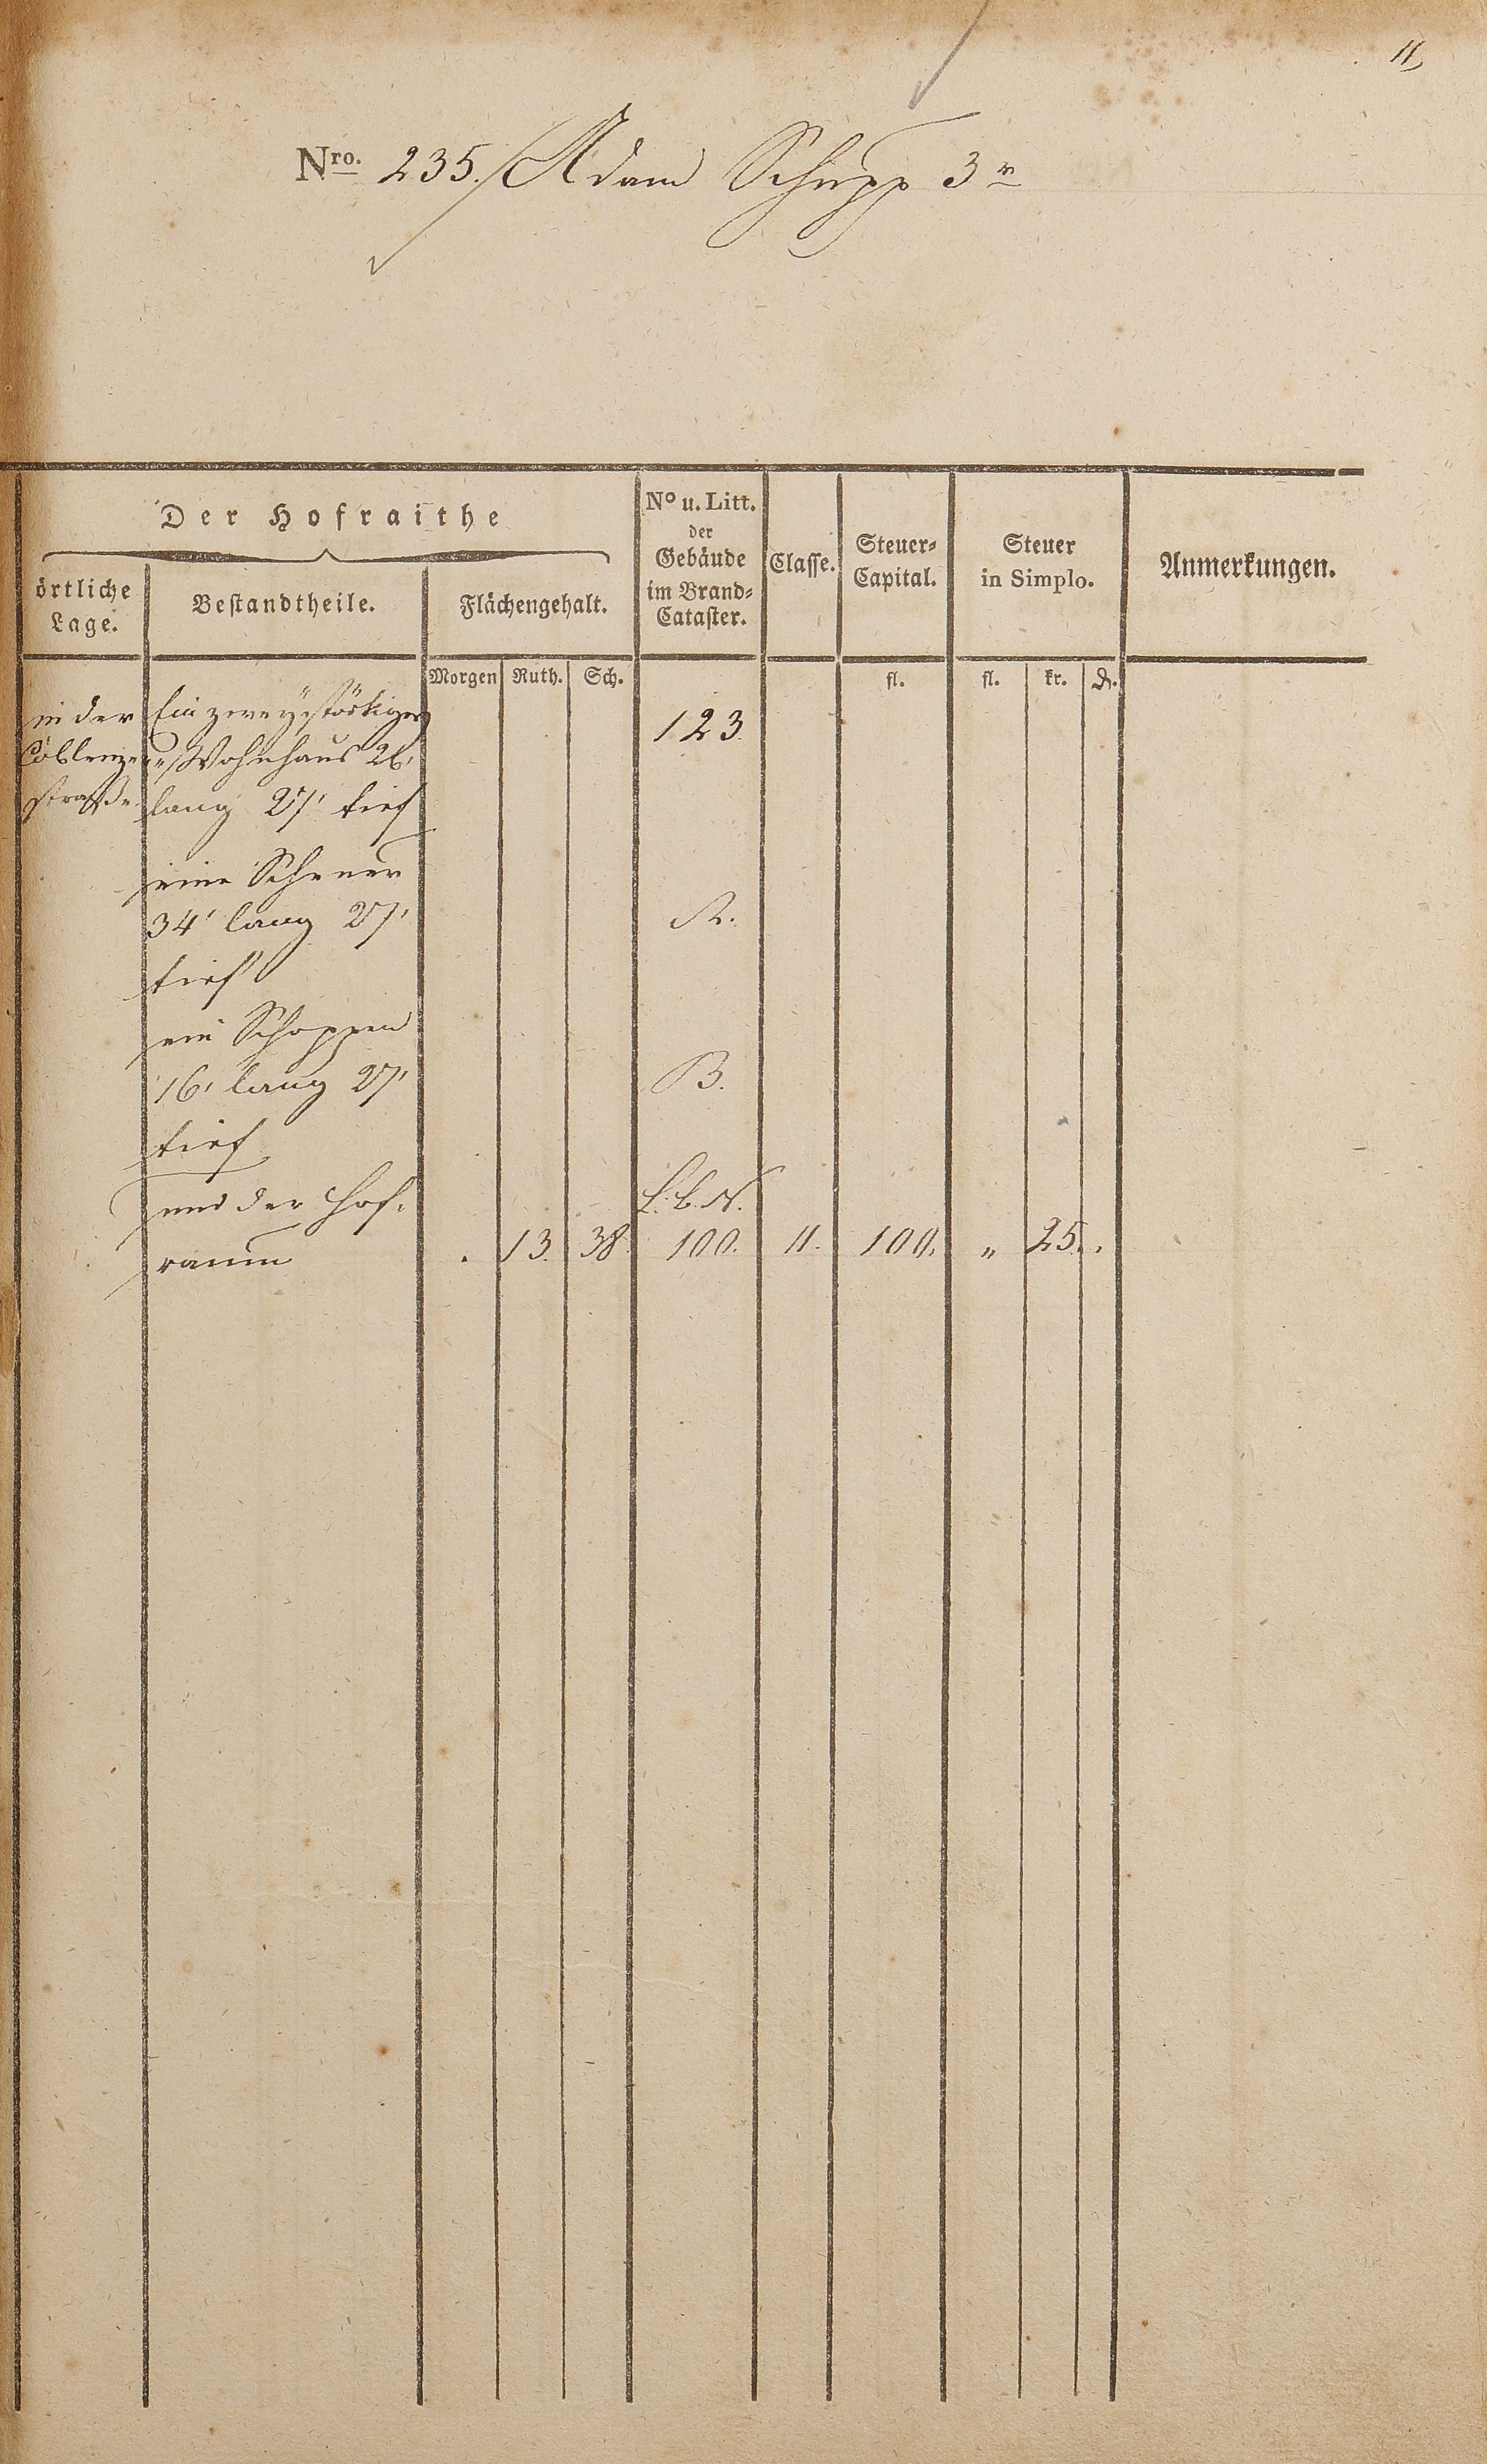 11,
Nro. 235. Adam Schupp 3r
Der Hofraithe
örtliche Lage.
Bestandtheile.
Flächengehalt.
No u. Litt. der Gebäude im Brand-Cataster.
Classe.
Steuer-Capital.
Steuer in Simplo.
Anmerkungen.
Morgen Ruth. Sch. fl. fl. kr. d.
in der Ein zweystöckiges 123.
Coblenzer Wohnhaus 26'
strasse lang 27' tief
eine Scheuer
34' lang 27' A.
tief
ein Schoppen
16' lang 27' B.
tief
und der Hof- L.b.N.
raum . 13. 38. 100. 11. 100. " 25. .